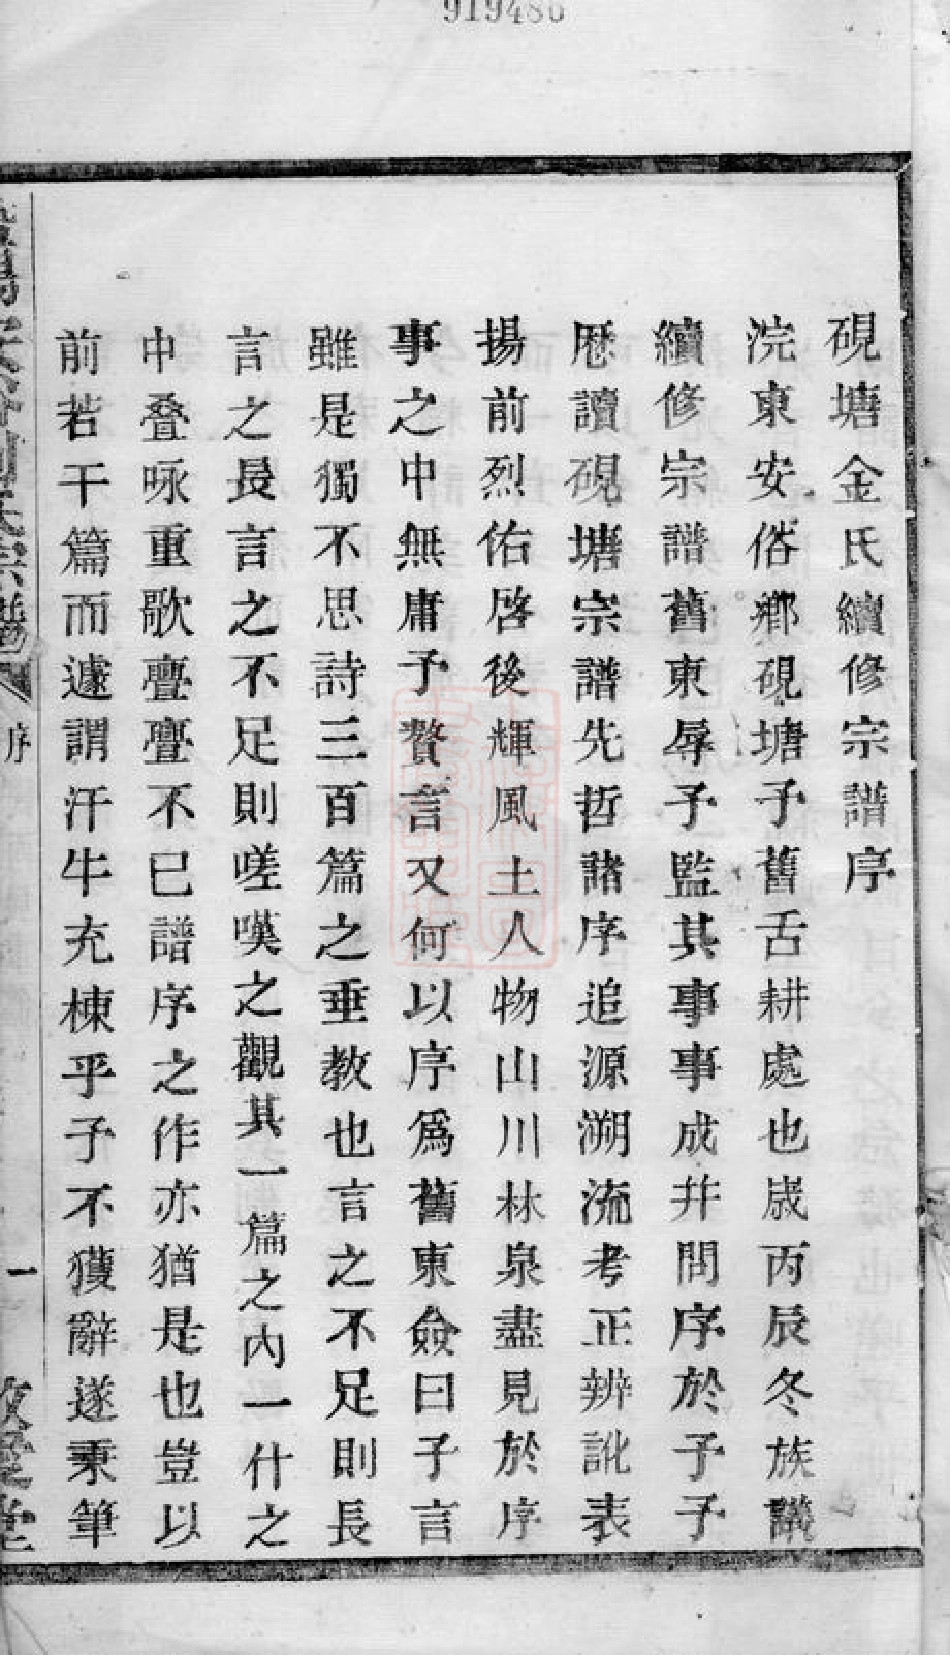 919486
硯塘金氏續修宗譜序
浣東安俗鄉硯塘予舊舌耕處也歲丙辰冬族議
續修宗譜舊東辱予監其事事成幷問序於予予
歷讀硯塘宗譜先哲諸序追源溯流考正辨訛表
揚前烈佑啓後輝風土人物山川林泉盡見於序
事之中無庸予贅言又何以序爲舊東僉曰子言
雖是獨不思詩三百篇之垂教也言之不足則長
言之長言之不足則嗟嘆之觀其一篇之內一什之
中叠咏重歌亹亹不已譜序之作亦猶是也豈以
前若干篇而遽謂汗牛充棟乎予不獲辭遂秉筆
氏宗譜
序
一
堂